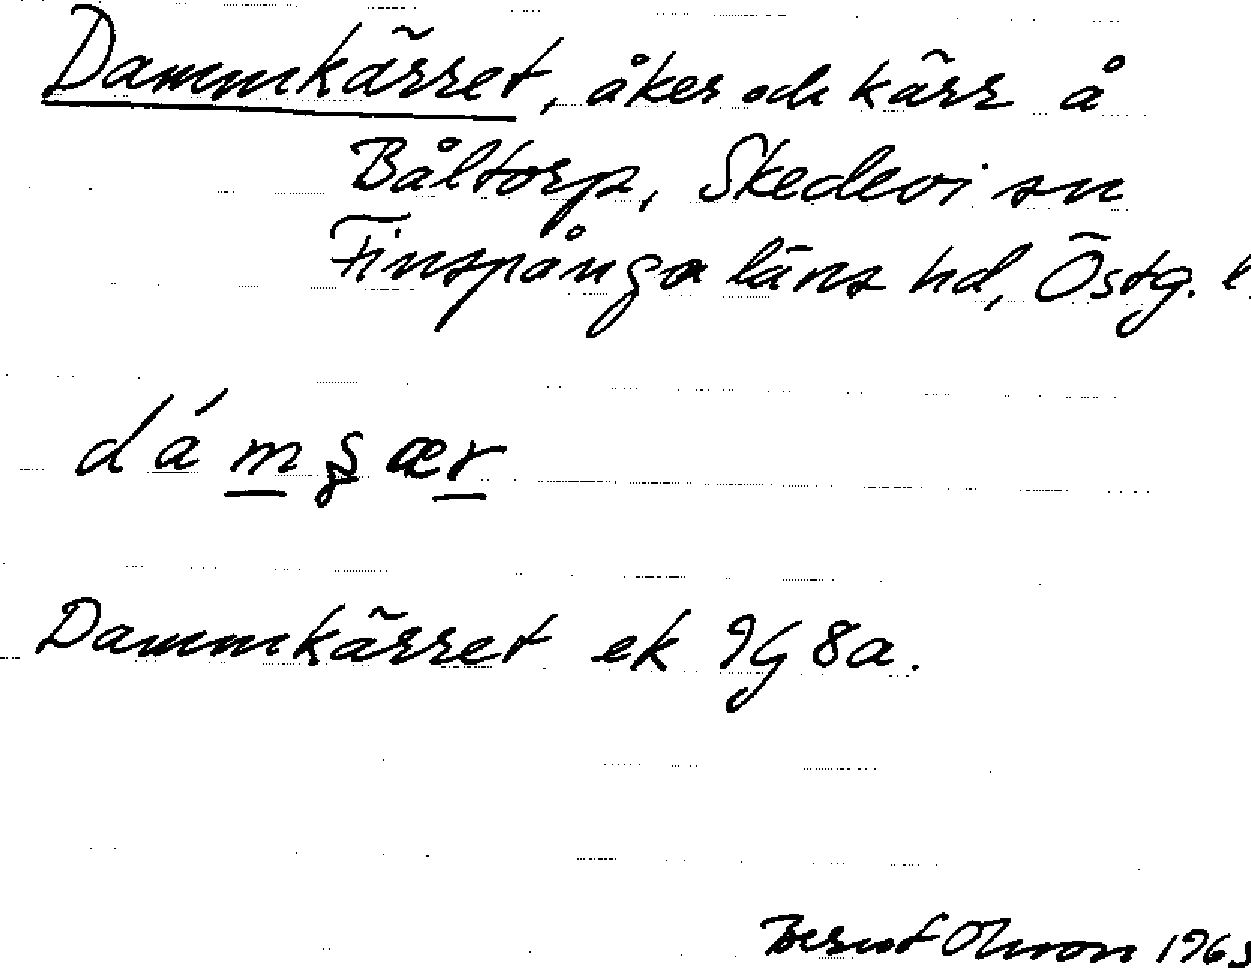 Dammkärret, åker och kärr å
Båltorp, Skedevi sn
Finspånga läns hd, Östg. l.
dámgær
Dammkärret ek 9G 8a.
Bernt Olsson